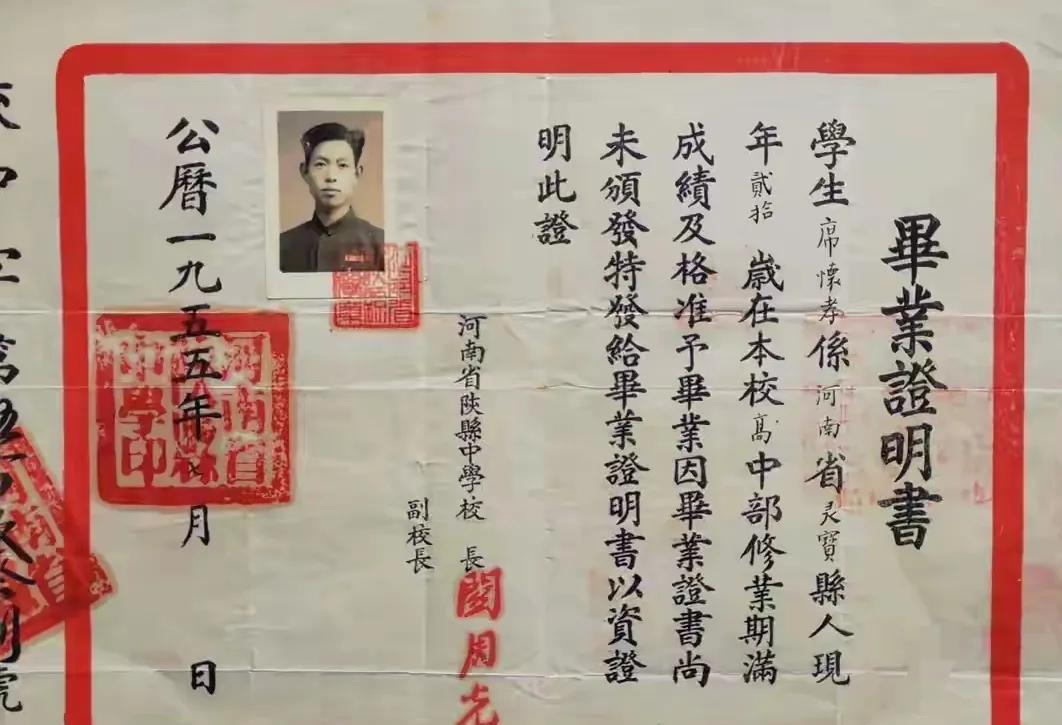 畢業證明書
學生席懷孝係河南省灵寶縣人現
年貳拾歲在本校高中部修業期滿
成績及格准予畢業因畢業證書尚
未頒發特發給畢業證明書以資證
明此證
河南省陝縣中學校長
閻周光
副校長
公曆一九五五年七月 日